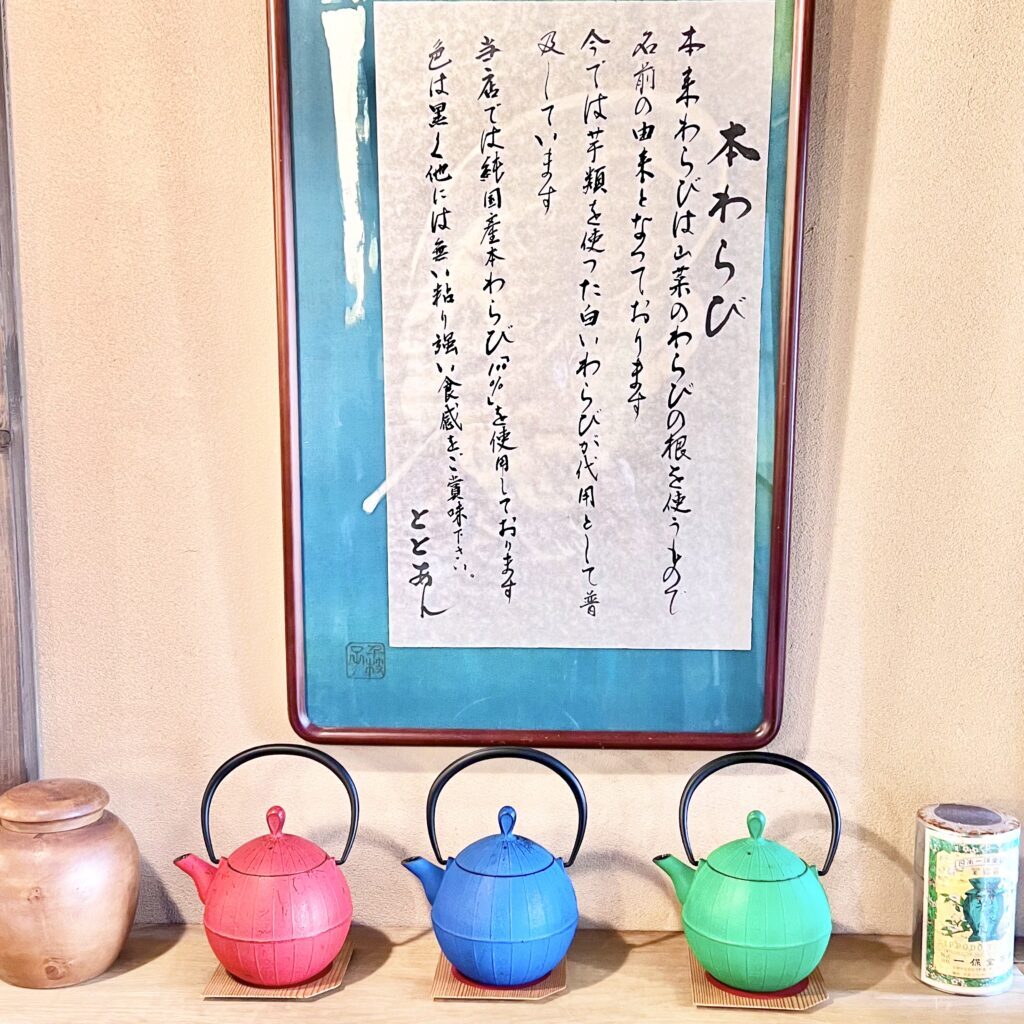 本わらび
本来わらびは山菜のわらびの根を使うもので
名前の由来となっております
今では芋類を使った白いわらびが代用として普
及しています
当店では純国産本わらび「100%」を使用しております
色は黒く他には無い粘り強い食感をご賞味下さい。
ととあん
IPPODO
一保堂